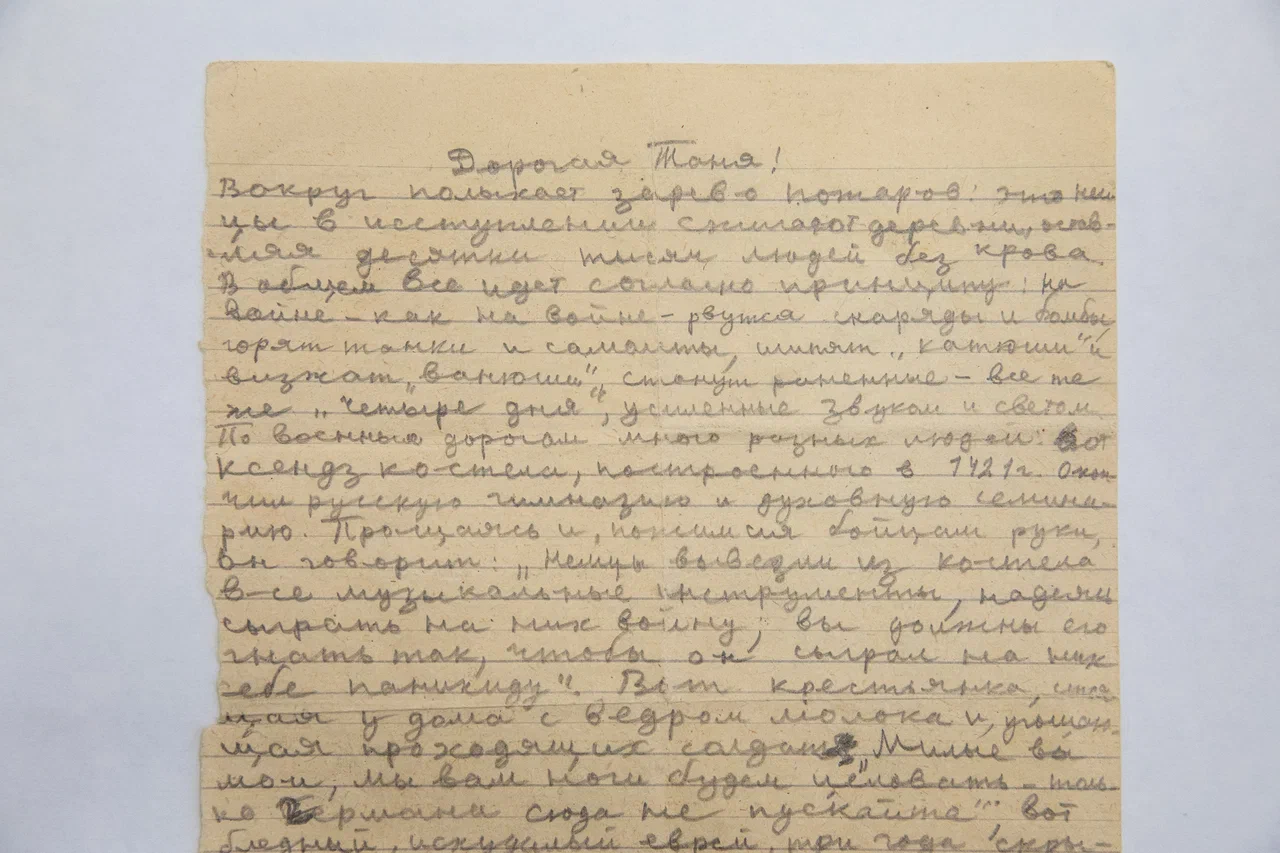 Дорогая Таня!
Вокруг полыхает зарево пожаров: это нем-
цы в исступлении сжигают деревни, остав-
ляя десятки тысяч людей без крова.
В общем все идет согласно принципу: на
войне – как на войне – рвутся снаряды и бомбы,
горят танки и самолеты, шипят „катюши" и
визжат „ванюши", стонут раненные – все те
же „четыре дня", усиленные звуком и светом.
По военным дорогам много разных людей. Вот
ксендз костела, построенного в 1421 г. Окон
чил русскую гимназию и духовную семина-
рию. Прощаясь и, пожимая бойцам руки,
он говорит: „Немцы вывезли из костела
все музыкальные инструменты, надеясь
сыграть на них войну, вы должны его
гнать так, чтобы он сыграл на них
себе панихиду". Вот крестьянка, стоя
щая у дома с ведром молока и, угощаю-
щая проходящих солдат: „Милые вы
мои, мы вам ноги будем целовать – толь-
ко Германа сюда не пускайте". Вот
бледный, исхудалый еврей, три года скры-